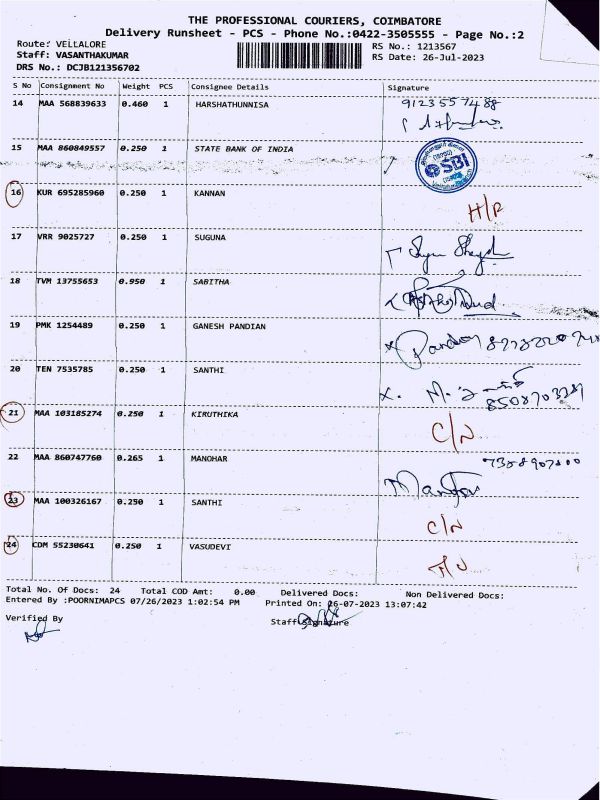 THE PROFESSIONAL COURIERS, COIMBATORE
Delivery Runsheet - PCS - Phone No.:0422-3505555 - Page No.:2
Route: VELLALORE
Staff: VASANTHAKUMAR
DRS No.: DCJB121356702
RS No.: 1213567
RS Date: 26-Jul-2023
S No Consignment No Weight PCS Consignee Details Signature
14 MAA 568839633 0.460 1 HARSHATHUNNISA 9123557488
15 MAA 860849557 0.250 1 STATE BANK OF INDIA SBI
16 KUR 695285960 0.250 1 KANNAN H/R
17 VRR 9025727 0.250 1 SUGUNA
18 TVM 13755653 0.950 1 SABITHA
19 PMK 1254489 0.250 1 GANESH PANDIAN
20 TEN 7535785 0.250 1 SANTHI
21 MAA 103185274 0.250 1 KIRUTHIKA C/N
22 MAA 860747760 0.265 1 MANOHAR
23 MAA 100326167 0.250 1 SANTHI C/N
24 CDM 55230641 0.250 1 VASUDEVI
Total No. Of Docs: 24 Total COD Amt: 0.00 Delivered Docs: Non Delivered Docs:
Entered By :POORNIMAPCS 07/26/2023 1:02:54 PM Printed On: 26-07-2023 13:07:42
Verified By Staff Signature